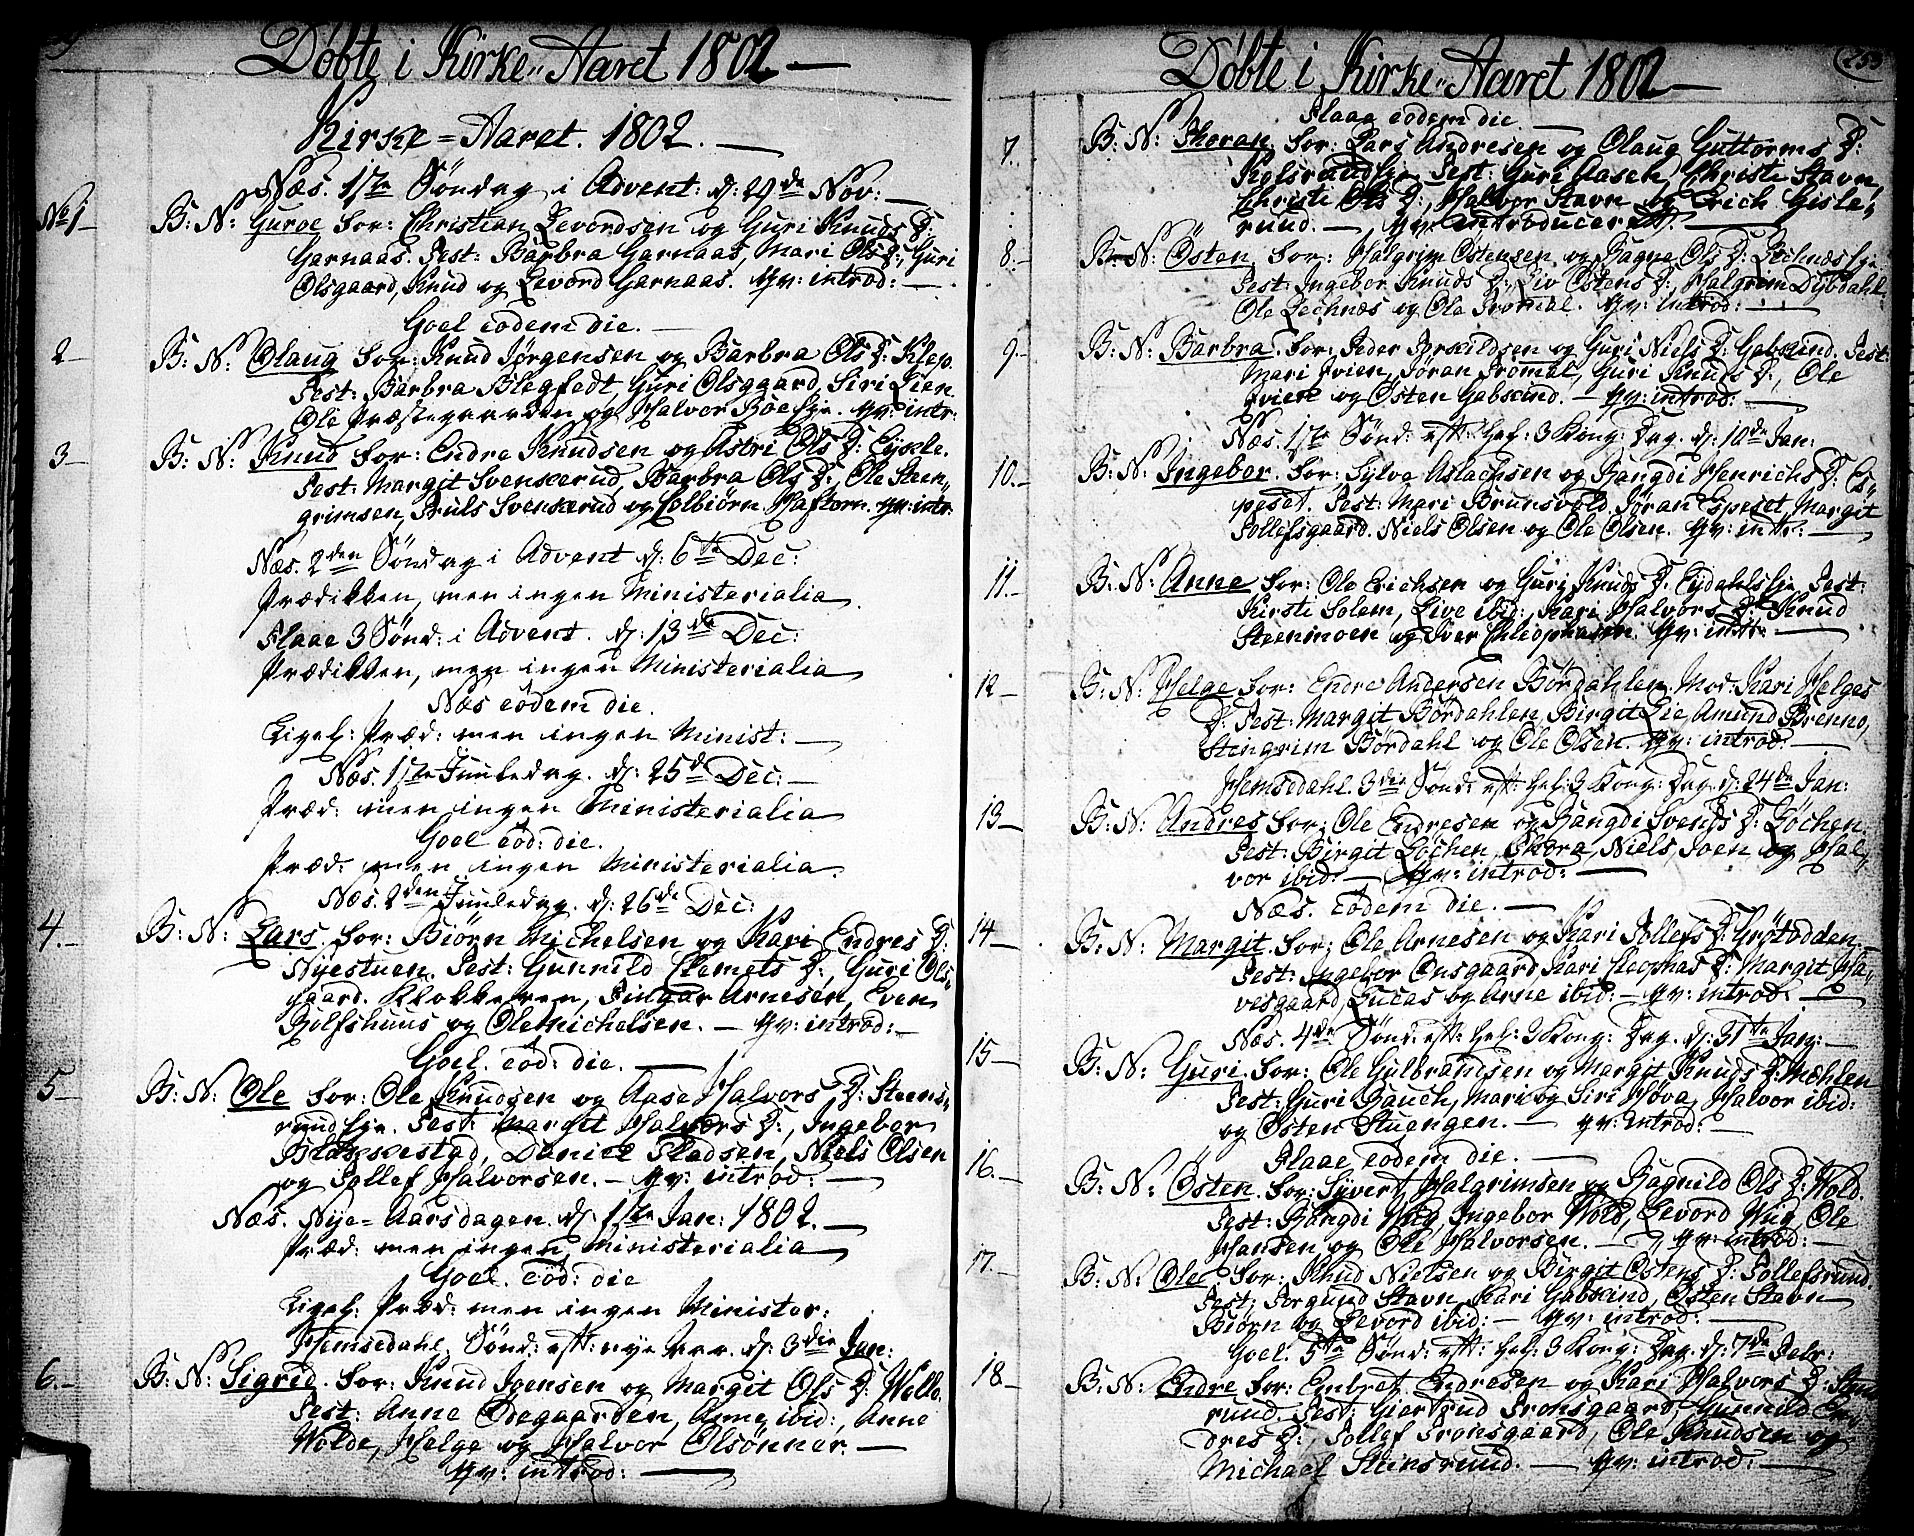 Döbte i Kirke-Aaret 1802
Kirke-Aaret. 1802.
Næs. 1ste Söndag i Advent: d: 29de Nov:
No 1 B: N: Guroe for: Christian Levordsen og Guri Knuds D:
Garnaas. Test: Barbra Garnaas, Mari Ols D:, Guri
Olsgaard, Knud og Levord Garnaas. Qv: introd:
Goel eodem die.
2 B: N: Olaug for: Knud Jörgensen og Barbra Ols D: Klep.
Test: Barbra Blegfedt, Guri Olsgaard, Siri Lien
Ole Præstegaarden og Halvor Böe Eje. Qv: intr:
3 B: N: Knud for: Endre Knudsen og Astri Ols D:
Test: Margit Svenkerud, Barbra Ols D:, Ole Steen-
grimsen, Truls Svenkerud og Colbiörn Haftorn. Qv: intr:
Næs. 2den Söndag i Advent d: 6te Dec:
Prædikken, men ingen Ministerialia
Flaae 3 Sönd: i Advent. d: 13de Dec:
Prædikken, men ingen Ministerialia
Næs eodem die.
Ligel: Præd: men ingen Minist:
Næs. 1ste Juuledag. d: 25de Dec:
Præd: men ingen Ministerialia
Goel eod: die.
Præd: men ingen Ministerialia.
Næs. 2den Juuledag. d: 26de Dec:
4. B: N: Lars. for: Biörn Michelsen og Kari Endres D:
Nyestuen. Test: Gunnild Clemets D:, Guri Ols-
gaard. Klokkeren, Fingar Arnesen, Even
Rolfshuus og Ole Michelsen. Qv: introd:
Goel. eod: die.
5 B: N: Ole for: Ole Knudsen og Aase Halvors D: Steens-
rud Eje. Test: Margit Halvors D:, Ingebor
Blakkestad, Daniel Sladsen, Niels Olsen
og Tollef Halvorsen. Qv: introd:
Næs. Nye-Aarsdagen. d: 1ste Jan: 1802.
Præd: men ingen ministerialia
Goel. eod: die
Ligel: Præd: men ingen Minister:
Hemsedahl. Sönd: eft: nye Aar. d: 3die Jan:
6. B: N: Sigrid. for: Knud Joensen og Margit Ols D: Wolle.
Test: Anne Ödegaarden, Anne ibid:, Anne
Wolde, Helge og Halvor Olsönner.
Qv: introd:
Döbte i Kirke-Aaret 1802
253
Flaae eodem die
7. B: N: Thoran. for: Lars Andresen og Olaug Guttorms D:
Kolsrud Eje. Test: Guri Aasen, Christi Stavn,
Christi Ols D:, Halvor Stavn og Erich Gisle-
rud. Qv: introduceret.
8. B: N: Östen. for: Halgrim Östensen og Ragne Ols D: Lechnæs Eje
Test: Ingebor Knuds D:, Liv Östens D:, Halgrim Dybdahl
Ole Lechnæs og Ole Tromal. Qv: introd:
9. B: N: Barbra. for: Peder Torkildsen og Guri Niels D: Gabskind. Test:
Mari Qvien, Joran Tromal, Guri Knuds D:, Ole
Qvien og Östen Gabskind. Qv: introd:
Næs. 1ste Sönd: eft: Hel: 3 Kong: Dag. d: 10de Jan:
10. B: N: Ingebor. for: Sylve Aslachsen og Rangdi Henrichs D: Es-
peset. Test: Mari Brunsvold, Jöran Espeset, Margit
Tollefsgaard. Niels Olsen og Ole Olsen. Qv: intr:
11. B: N: Anne for: Ole Erichsen og Guri Knuds D: Eydahls Eje Test:
Kirsti Solem, Live ibid:, Kari Halvors D: Knud
Steenmoen og Iver Chleophasen. Qv: intr:
12 B: N: Helge for: Endre Andersen Bördahlen. Mod: Kari Helges
D: Test: Margit Bördahlen, Birgit Lie, Amund Brenno,
Stengrim Bördahl og Ole Olsen. Qv: introd:
Hemsedahl. 3die Sönd: eft: Hel: 3 Kong: Dag. d: 24de Jan:
13 B: N: Andres for: Ole Endresen og Rangdi Svends D: Löchen.
Test: Birgit Löchen, Thora, Niels, Joen og Hal-
vor ibid: Qv: introd:
Næs. eodem die.
14 B: N: Margit. for: Ole Arnesen og Kari Tollefs D: Grötodden
Test: Ingebor Onsgaard, Kari Cleophas D: Margit Ha-
vesgaard, Lucas og Arne ibid: Qv: introd:
Næs. 4de Sönd: eft: Hel: 3 Kong: Dag. d: 31te Jan:
15 B: N: Guri. for: Ole Gulbrandsen og Margit Knuds D: Mæhlen
Test: Guri Rauch, Mari og Siri Höva, Halvor ibid:
og Östen Stuengen. Qv: introd:
Flaae eodem die.
16. B: N: Östen. for: Syvert Halgrimsen og Ragnild Ols D: Wold.
Test: Rangdi Wiig, Ingebor Wold, Levord Wiig, Ole
Hansen og Ole Halvorsen. Qv: introd:
17. B: N: Ole. for: Knud Nielsen og Birgit Östens D: Tollefsrud.
Test: Torgund Stavn, Kari Gabskind, Östen Stavn
Biörn og Levord ibid: Qv: introd:
Goel. 5te Sönd: eft: Hel: 3 Kong: Dag. d: 7de Febr:
18 B: N: Endre for: Embret Endresen og Kari Halvors D:
rund. Test: Giertrud Tronsgaard, Gunnild En-
dres D:, Tollef Tronsgaard, Ole Knudsen og
Michael Steinsrund. Qv: introd: